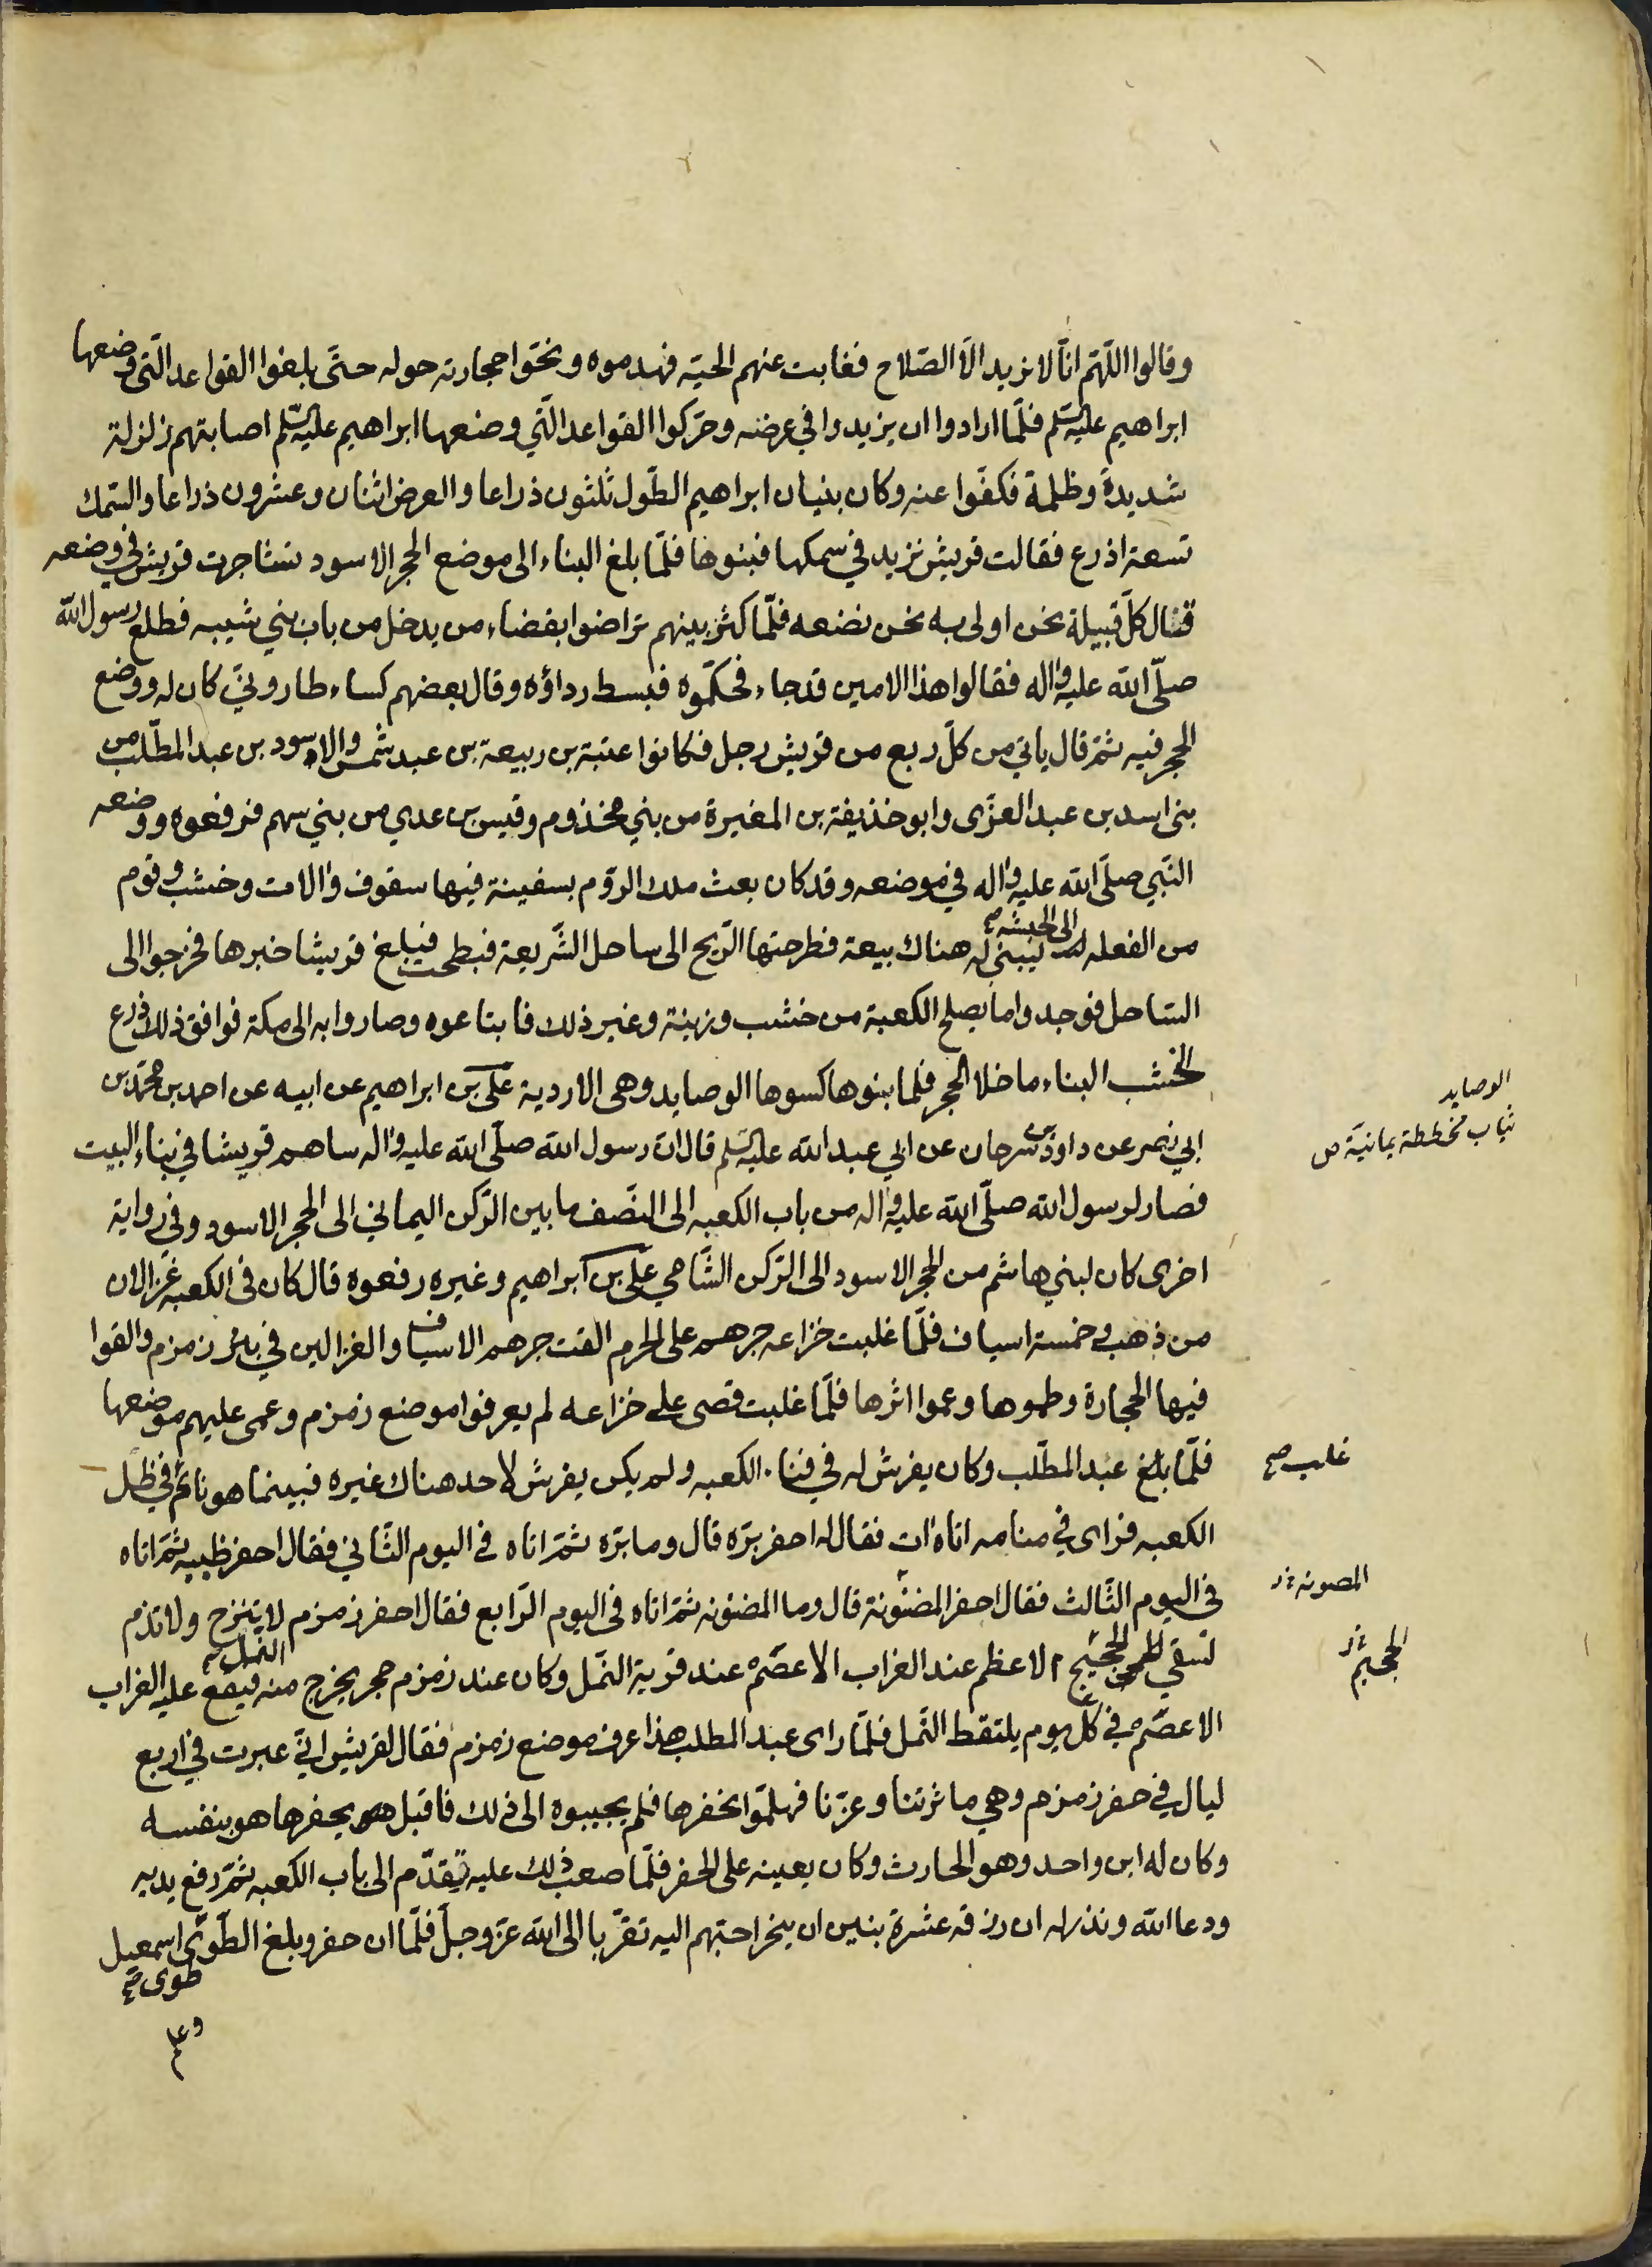 وقالوا اللّهمّ انّا لا نريد الّا الصّلاح فغابت عنهم الحيّه فهدموه ونحّوا حجارته حوله حتّى بلغوا القواعد الّتي وضعها
ابراهيم عليه السّلم فلمّا ارادوا ان يزيدوا في عرضه وحرّكوا القواعد الّتي وضعها ابراهيم عليه السّلم اصابتهم زلزلة
شديدة وظلمة فكفّوا عنه وكان بنيان ابراهيم الطّول ثلثون ذراعا والعرض اثنان وعشرون ذراعا والسّمك
تسعة اذرع فقالت قريش نزيد في سمكها فبنوها فلمّا بلغ البناء الى موضع الحجر الاسود تشاجرت قريش في وضعه
فقال كلّ قبيلة نحن اولى به نحن نضعه فلمّا كثر بينهم تراضوا بقضاء من يدخل من باب بني شيبه فطلع رسول الله
صلّى الله عليه واله فقالوا هذا الامين قد جاء فحكّموه فبسط رداؤه وقال بعضهم كساء طاروني كان له ووضع
الحجر فيه ثمّ قال ياتي من كلّ ربع من قريش رجل فكانوا عتبة بن ربيعة بن عبد شمس والاسود بن عبد المطّلب من
بنى اسد بن عبد العزّى وابو حذيفة بن المغيرة من بني مخذوم وقيس بن عدي من بني سهم فرفعوه ووضعه
النّبي صلّى الله عليه واله في موضعه وقد كان بعث ملك الرّوم بسفينة فيها سقوف والات وخشب وقوم
من الفعله الى الحبشه صح ليبنى له هناك بيعة فطرحتها الرّيح الى ساحل الشّريعة فبطحت فبلغ قريشا خبرها فخرجوا الى
السّاحل فوجدوا ما يصلح الكعبة من خشب وزينة وغير ذلك فابتاعوه وصاروا به الى مكة فوافق ذلك ذرع
الخشب البناء ما خلا الحجر فلما بنوها كسوها الوصايد وهى الاردية علي بن ابراهيم عن ابيه عن احمد بن محمّد بن
ابي نصر عن داود بن سرحان عن ابي عبد الله عليه السّلم قال انّ رسول الله صلّى الله عليه واله ساهم قريشا في بناء البيت
فصار لرسول الله صلّى الله عليه واله من باب الكعبه الى النّصف ما بين الرّكن اليماني الى الحجر الاسود وفي رواية
اخرى كان لبني هاشم من الحجر الاسود الى الرّكن الشّامي علي بن ابراهيم وغيره رفعوه قال كان فى الكعبه غزالان
من ذهب وخمسة اسياف فلمّا غلبت خزاعه جرهم على الحرم القت جرهم الاسياف والغزالين في بئر زمزم والقوا
فيها الحجارة وطموها وعموا اثرها فلمّا غلبت قصى على خزاعه لم يعرفوا موضع زمزم وعمى عليهم موضعها
فلمّا بلغ عبد المطّلب وكان يفرش له في فناء الكعبه ولم يكن يفرش لاحد هناك غيره فبينما هو نائم في ظل
الكعبه فراى في منامه اتاه ات فقال له احفر برّه قال وما برّه ثمّ اتاه في اليوم الثّاني فقال احفر طيبه ثمّ اتاه
في اليوم الثّالث فقال احفر المضنونة قال وما المضنونه ثمّ اتاه في اليوم الرّابع فقال احفر زمزم لا تنزح ولا تذم
لسقي الحجيج الاعظم عند الغراب الاعصم عند قرية النّمل وكان عند زمزم حجر يخرج منه النمل صح فيقع عليه الغراب
الاعصم في كلّ يوم يلتقط النّمل فلمّا راى عبد المطلب هذا عرف موضع زمزم فقال لقريش انّي عبرت في اربع
ليال في حفر زمزم وهي ماثرتنا وعزّنا فهلمّوا نحفرها فلم يجيبوه الى ذلك فاقبل يحفرها هو بنفسه
وكان له ابن واحد وهو الحارث وكان يعينه على الحفر فلمّا صعب ذلك عليه تقدّم الى باب الكعبه ثمّ رفع يديه
ودعا الله ونذر له ان رزقه عشرة بنين ان ينحر احبّهم اليه تقرّبا الى الله عزّ وجلّ فلمّا ان حفر وبلغ الطّوىّ اسمعيل
طوى صح
وعلم
الوصايد
ثياب مخططة يمانيّة ص
غلب صح
المصونه خ ر
الحجيج